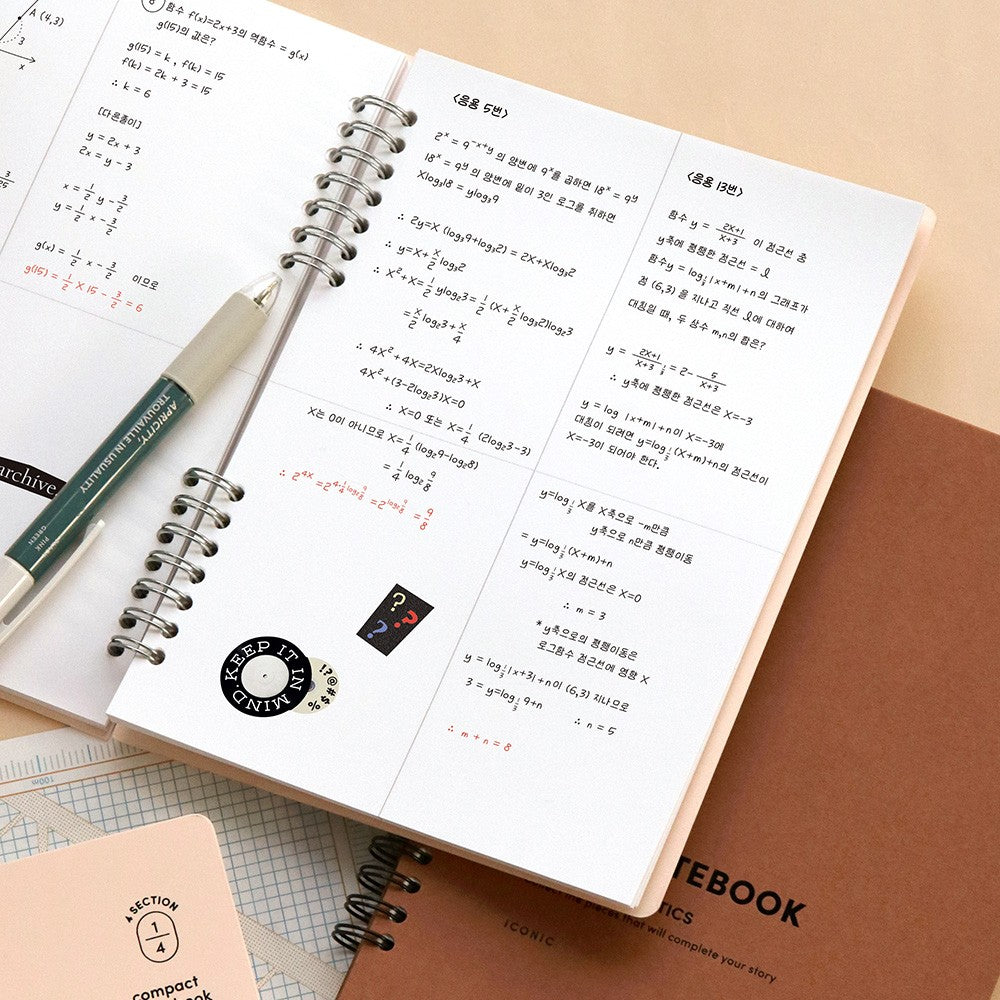 A (4,3)
3
x
3
25
8 함수 f(x)=2x+3의 역함수 = g(x)
g(15)의 값은?
g(15) = k , f(k) = 15
f(k) = 2k + 3 = 15
∴ k = 6
[다른풀이]
y = 2x + 3
2x = y - 3
x = 1/2 y - 3/2
y = 1/2 x - 3/2
g(x) = 1/2 x - 3/2 이므로
g(15) = 1/2 X 15 - 3/2 = 6
archive
APRICITY,
TROUVAILLE IN USUALITY
PINK
GREEN
<응용 5번>
2^x = 9^-x+y 의 양변에 9^x을 곱하면 18^x = 9^y
18^x = 9^y 의 양변에 밑이 3인 로그를 취하면
Xlog₃18 = ylog₃9
∴ 2y=X (log₃9+log₃2) = 2X+Xlog₃2
∴ y=X+ X/2 log₃2
∴ X²+X= 1/2 ylog₂3= 1/2 (X+ X/2 log₃2)log₂3
= X/2 log₂3+ X/4
∴ 4X²+4X=2Xlog₂3+X
4X²+(3-2log₂3)X=0
∴ X=0 또는 X= 1/4 (2log₂3-3)
X는 0이 아니므로 X= 1/4 (log₂9-log₂8)
= 1/4 log₂ 9/8
∴ 2^4X = 2^4·1/4 log₂ 9/8 = 2^log₂ 9/8 = 9/8
KEEP IT IN MIND.
!?@#$%
? ? ?
<응용 13번>
함수 y = 2X+1/X+3 이 점근선 중
y축에 평행한 점근선 = l
함수y = log 1/3 |x+m|+n의 그래프가
점 (6,3) 을 지나고 직선 l에 대하여
대칭일 때, 두 상수 m,n의 합은?
y = 2X+1/X+3 = 2- 5/X+3
∴ y축에 평행한 점근선은 X=-3
y = log 1/3 |x+m|+n이 X=-3에
대칭이 되려면 y=log 1/3 (X+m)+n의 점근선이
X=-3이 되어야 한다.
y=log 1/3 X를 X축으로 -m만큼
y축으로 n만큼 평행이동
= y=log 1/3 (X+m)+n
y=log 1/3 X의 점근선은 X=0
∴ m = 3
* y축으로의 평행이동은
로그함수 점근선에 영향 X
y = log 1/3 |x+3|+n이 (6,3) 지나므로
3 = y=log 1/3 9+n
∴ n = 5
∴ m + n = 8
100m
SECTION
1
4
compact
TEBOOK
TICS
the pieces that will complete your story
ICONIC